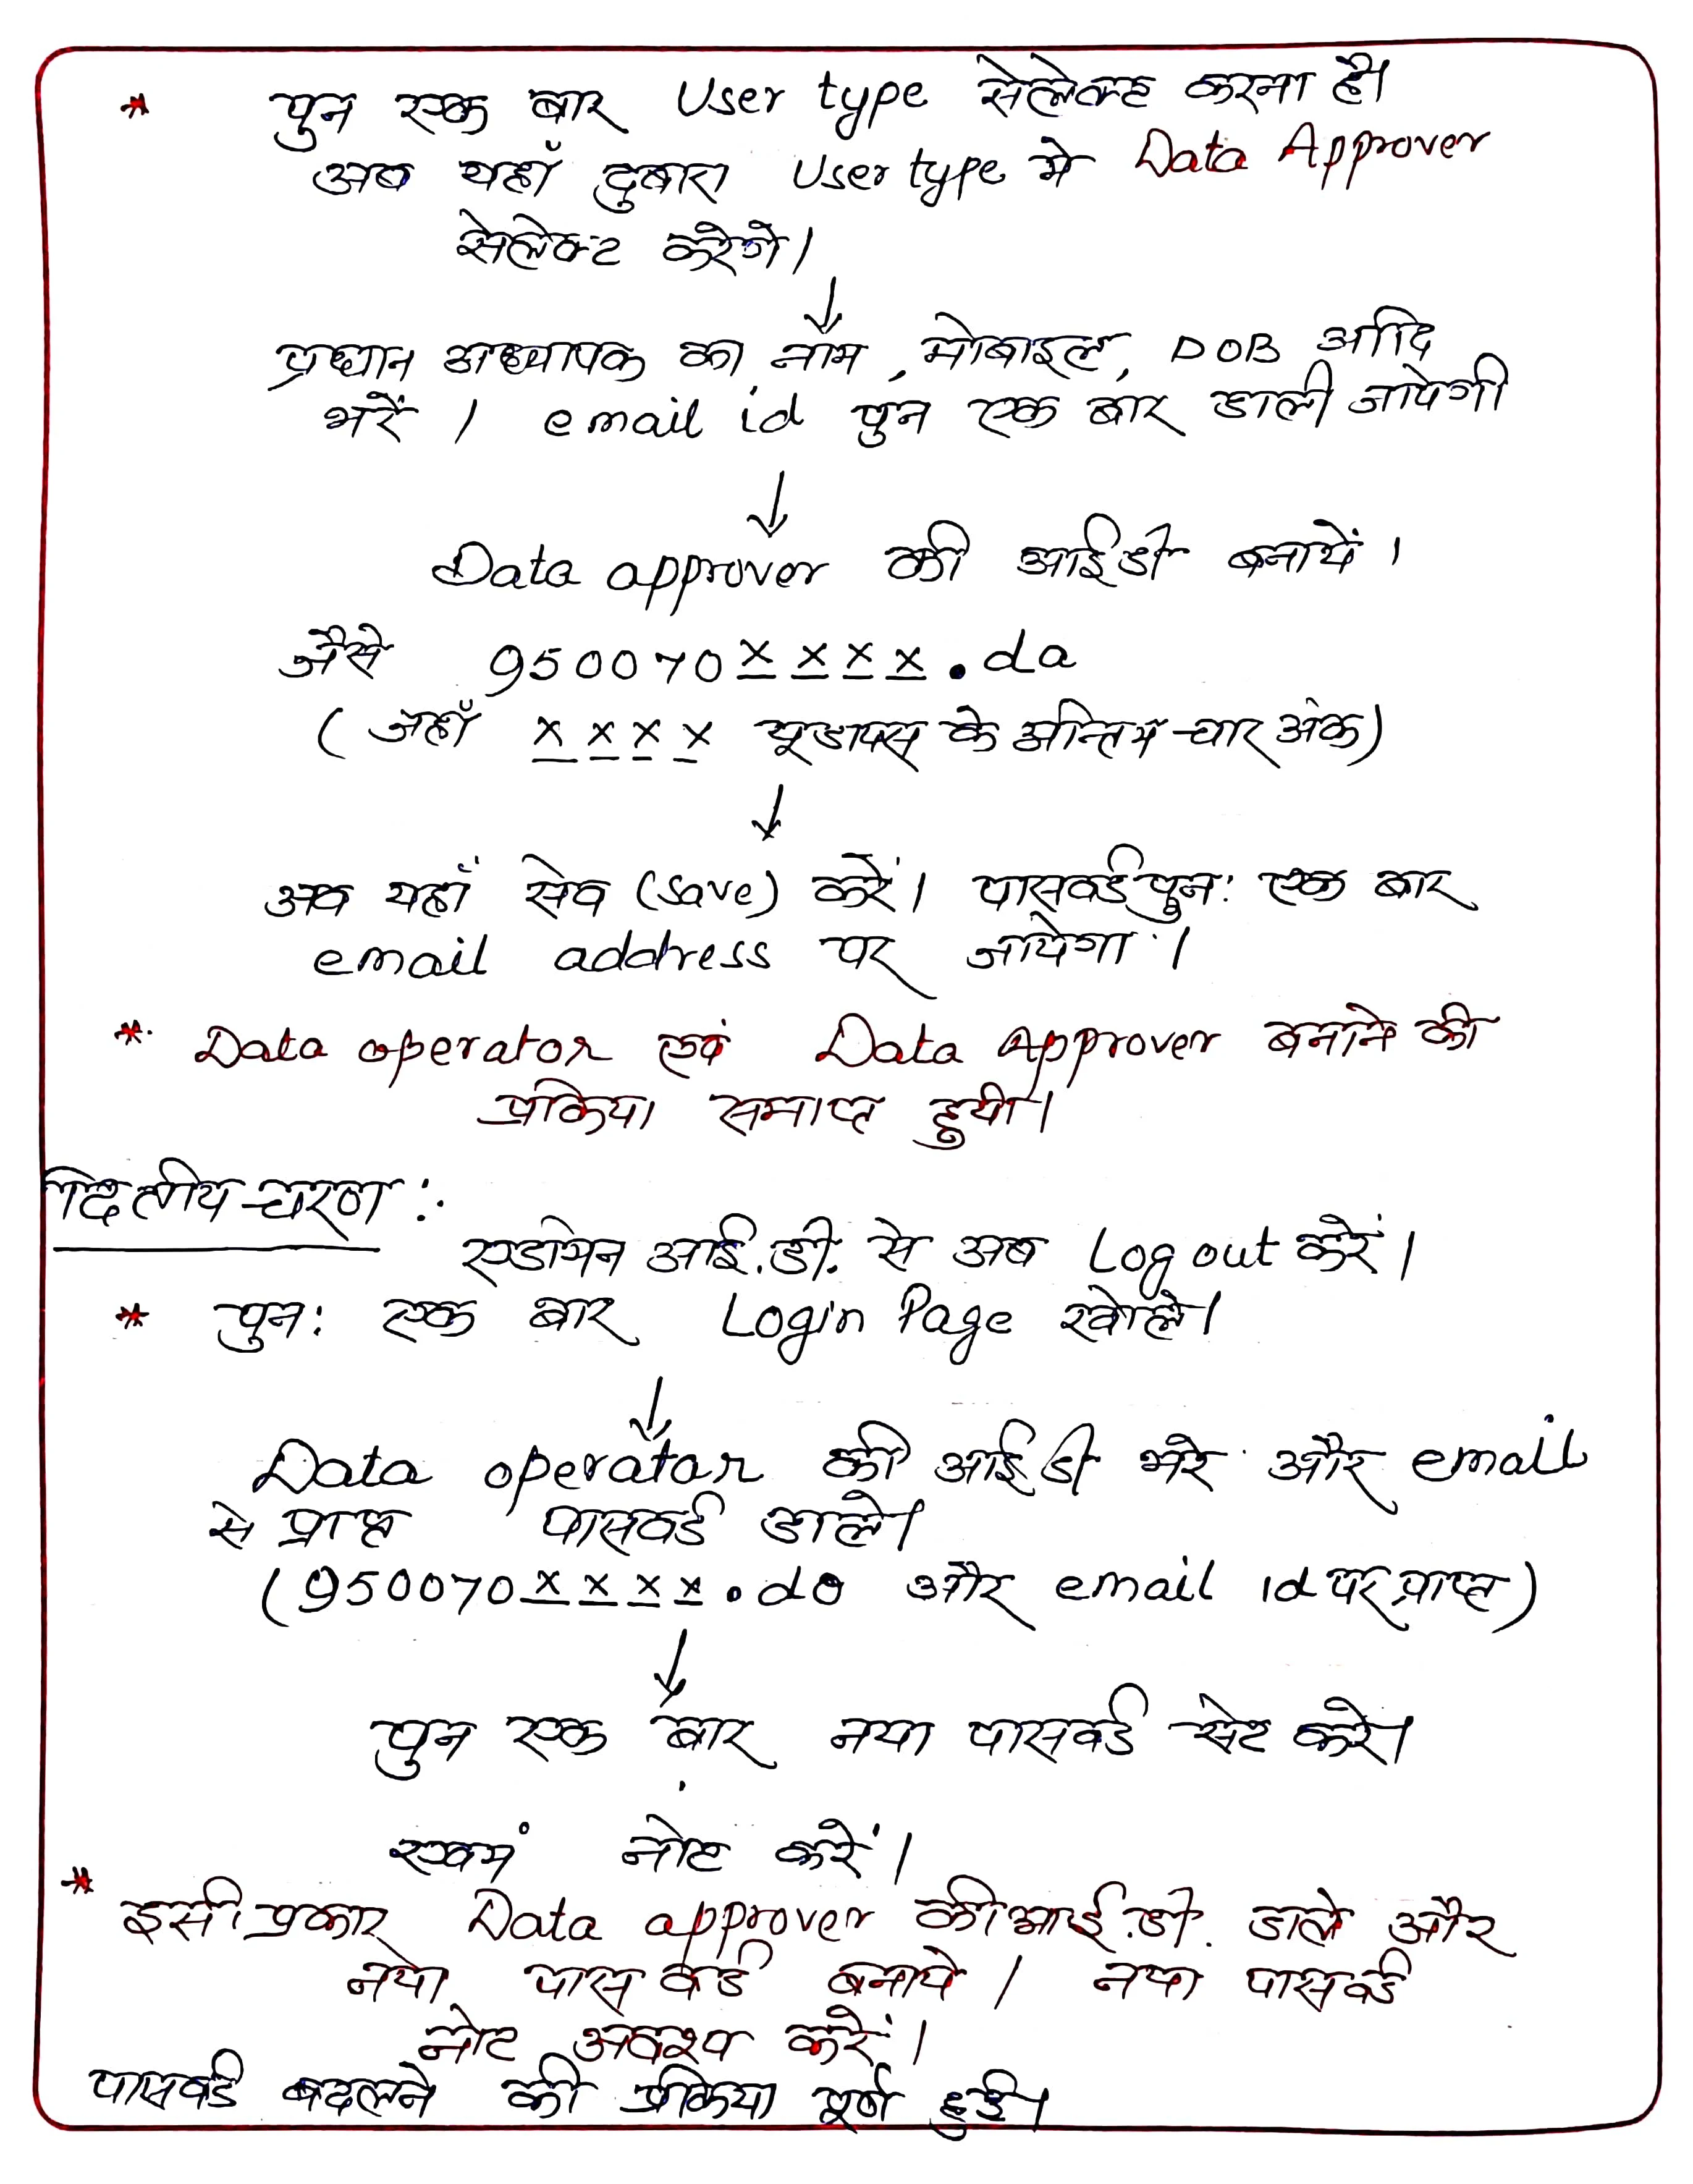 * पुन एक बार User type सेलेक्ट करना है।
अब यहाँ दुबारा User type मे Data Approver
सेलेक्ट करेगे।
↓
प्रधान अध्यापक का नाम, मोबाइल, DOB आदि
भरें। email id पुन एक बार डाली जायेगी
↓
Data approver की आईडी बनायें।
जैसे 950070××××.da
(जहाँ ×××× यूडायस के अन्तिम चार अंक)
↓
अब यहाँ सेव (save) करें। पासवर्ड पुन: एक बार
email address पर जायेगा।
* Data operator एवं Data Approver बनाने की
प्रक्रिया समाप्त हुयी।
द्वितीय चरण :-
एडमिन आई.डी. से अब Log out करें।
* पुन: एक बार Login Page खोले।
↓
Data operator की आईडी भरे और email
से प्राप्त पासवर्ड डाले।
(950070××××.do और email id पर प्राप्त)
↓
पुन एक बार नया पासवर्ड सेट करे।
एवम् नोट करें।
* इसी प्रकार Data approver की आई.डी. डाले और
नया पासवर्ड बनाये। नया पासवर्ड
नोट अवश्य करें।
पासवर्ड बदलने की प्रक्रिया पूर्ण हुई।